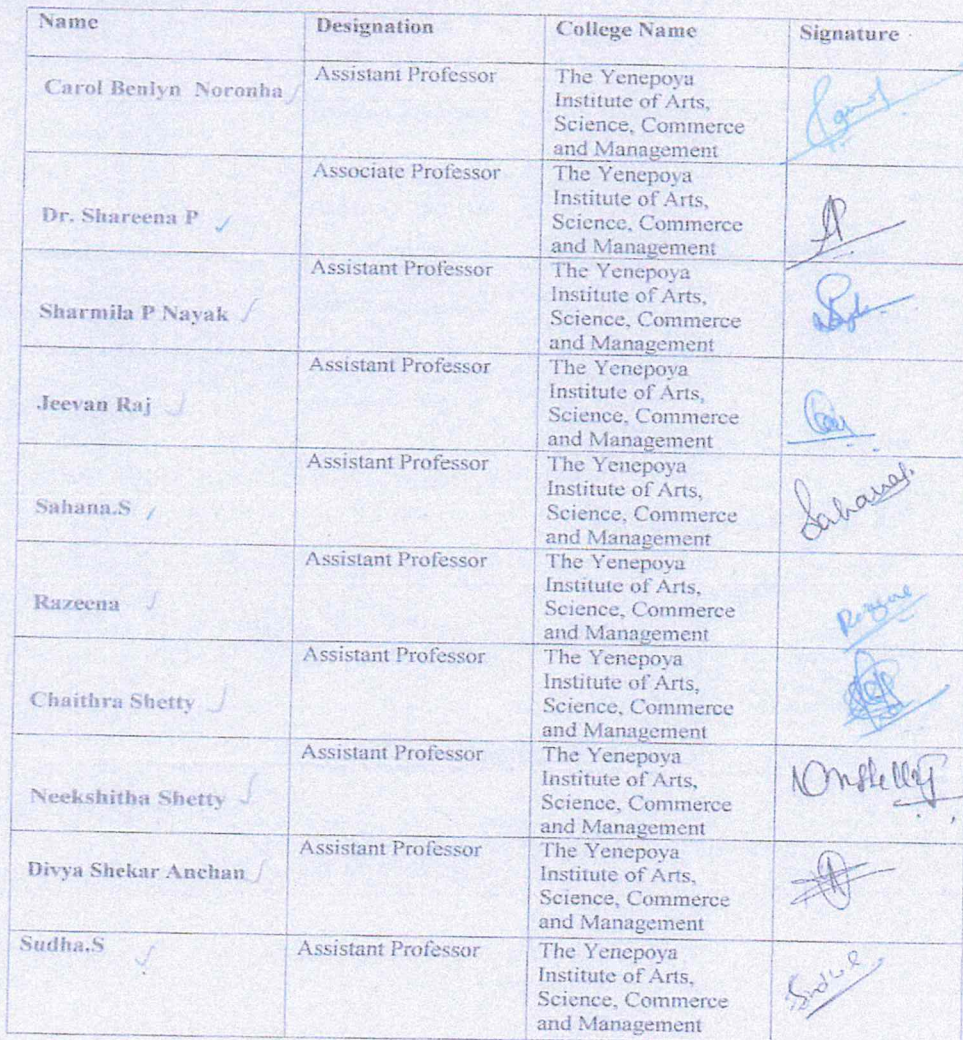 Name Designation College Name Signature
Carol Benlyn Noronha Assistant Professor The Yenepoya
Institute of Arts,
Science, Commerce
and Management
Dr. Shareena P Associate Professor The Yenepoya
Institute of Arts,
Science, Commerce
and Management
Sharmila P Nayak Assistant Professor The Yenepoya
Institute of Arts,
Science, Commerce
and Management
Jeevan Raj Assistant Professor The Yenepoya
Institute of Arts,
Science, Commerce
and Management
Sahana.S Assistant Professor The Yenepoya
Institute of Arts,
Science, Commerce
and Management
Razeena Assistant Professor The Yenepoya
Institute of Arts,
Science, Commerce
and Management
Chaithra Shetty Assistant Professor The Yenepoya
Institute of Arts,
Science, Commerce
and Management
Neekshitha Shetty Assistant Professor The Yenepoya
Institute of Arts,
Science, Commerce
and Management
Divya Shekar Anchan Assistant Professor The Yenepoya
Institute of Arts,
Science, Commerce
and Management
Sudha.S Assistant Professor The Yenepoya
Institute of Arts,
Science, Commerce
and Management